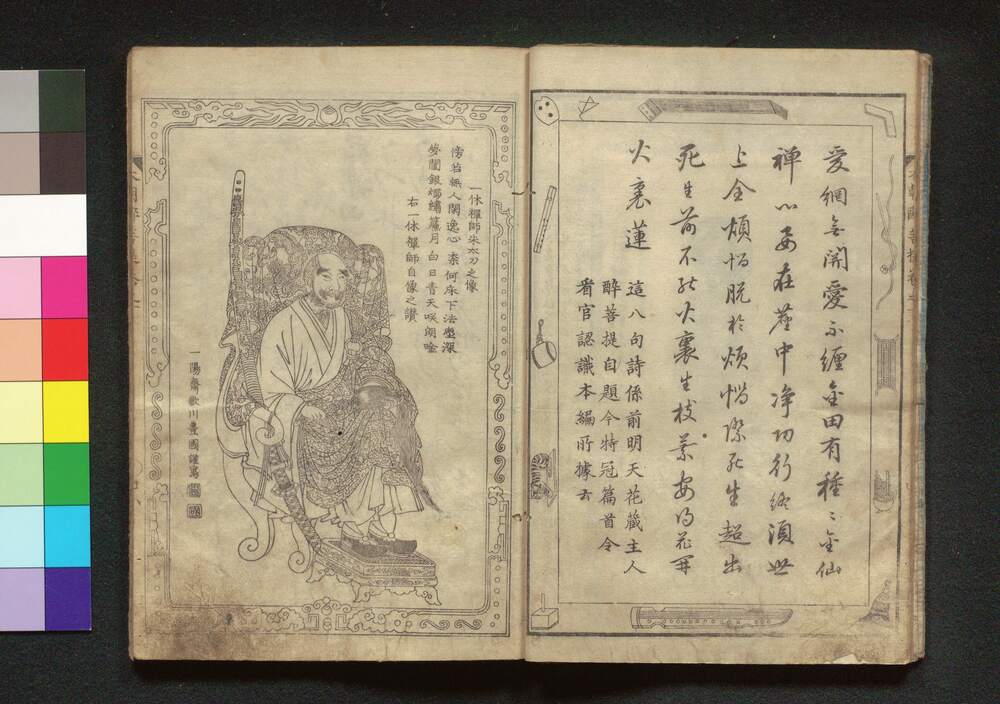 愛網無関愛不纏金田有種〻金仙
禅心要在塵中净功行終須世
上全煩惱脱於煩惱際死生超出
死生前不能火裏生枝葉安得花開
火裏蓮
這八句詩係前明天花藏主人
醉菩提自題今特冠篇首令
看官認識本編所據云
一休禪師朱太刀之像
傍若無人閑逸心柰何床下法塵深
夢闌銀燭繡簾月白日青天咲朗吟
右一休禪師自像之讃
一陽齋歌川豊國謹寫